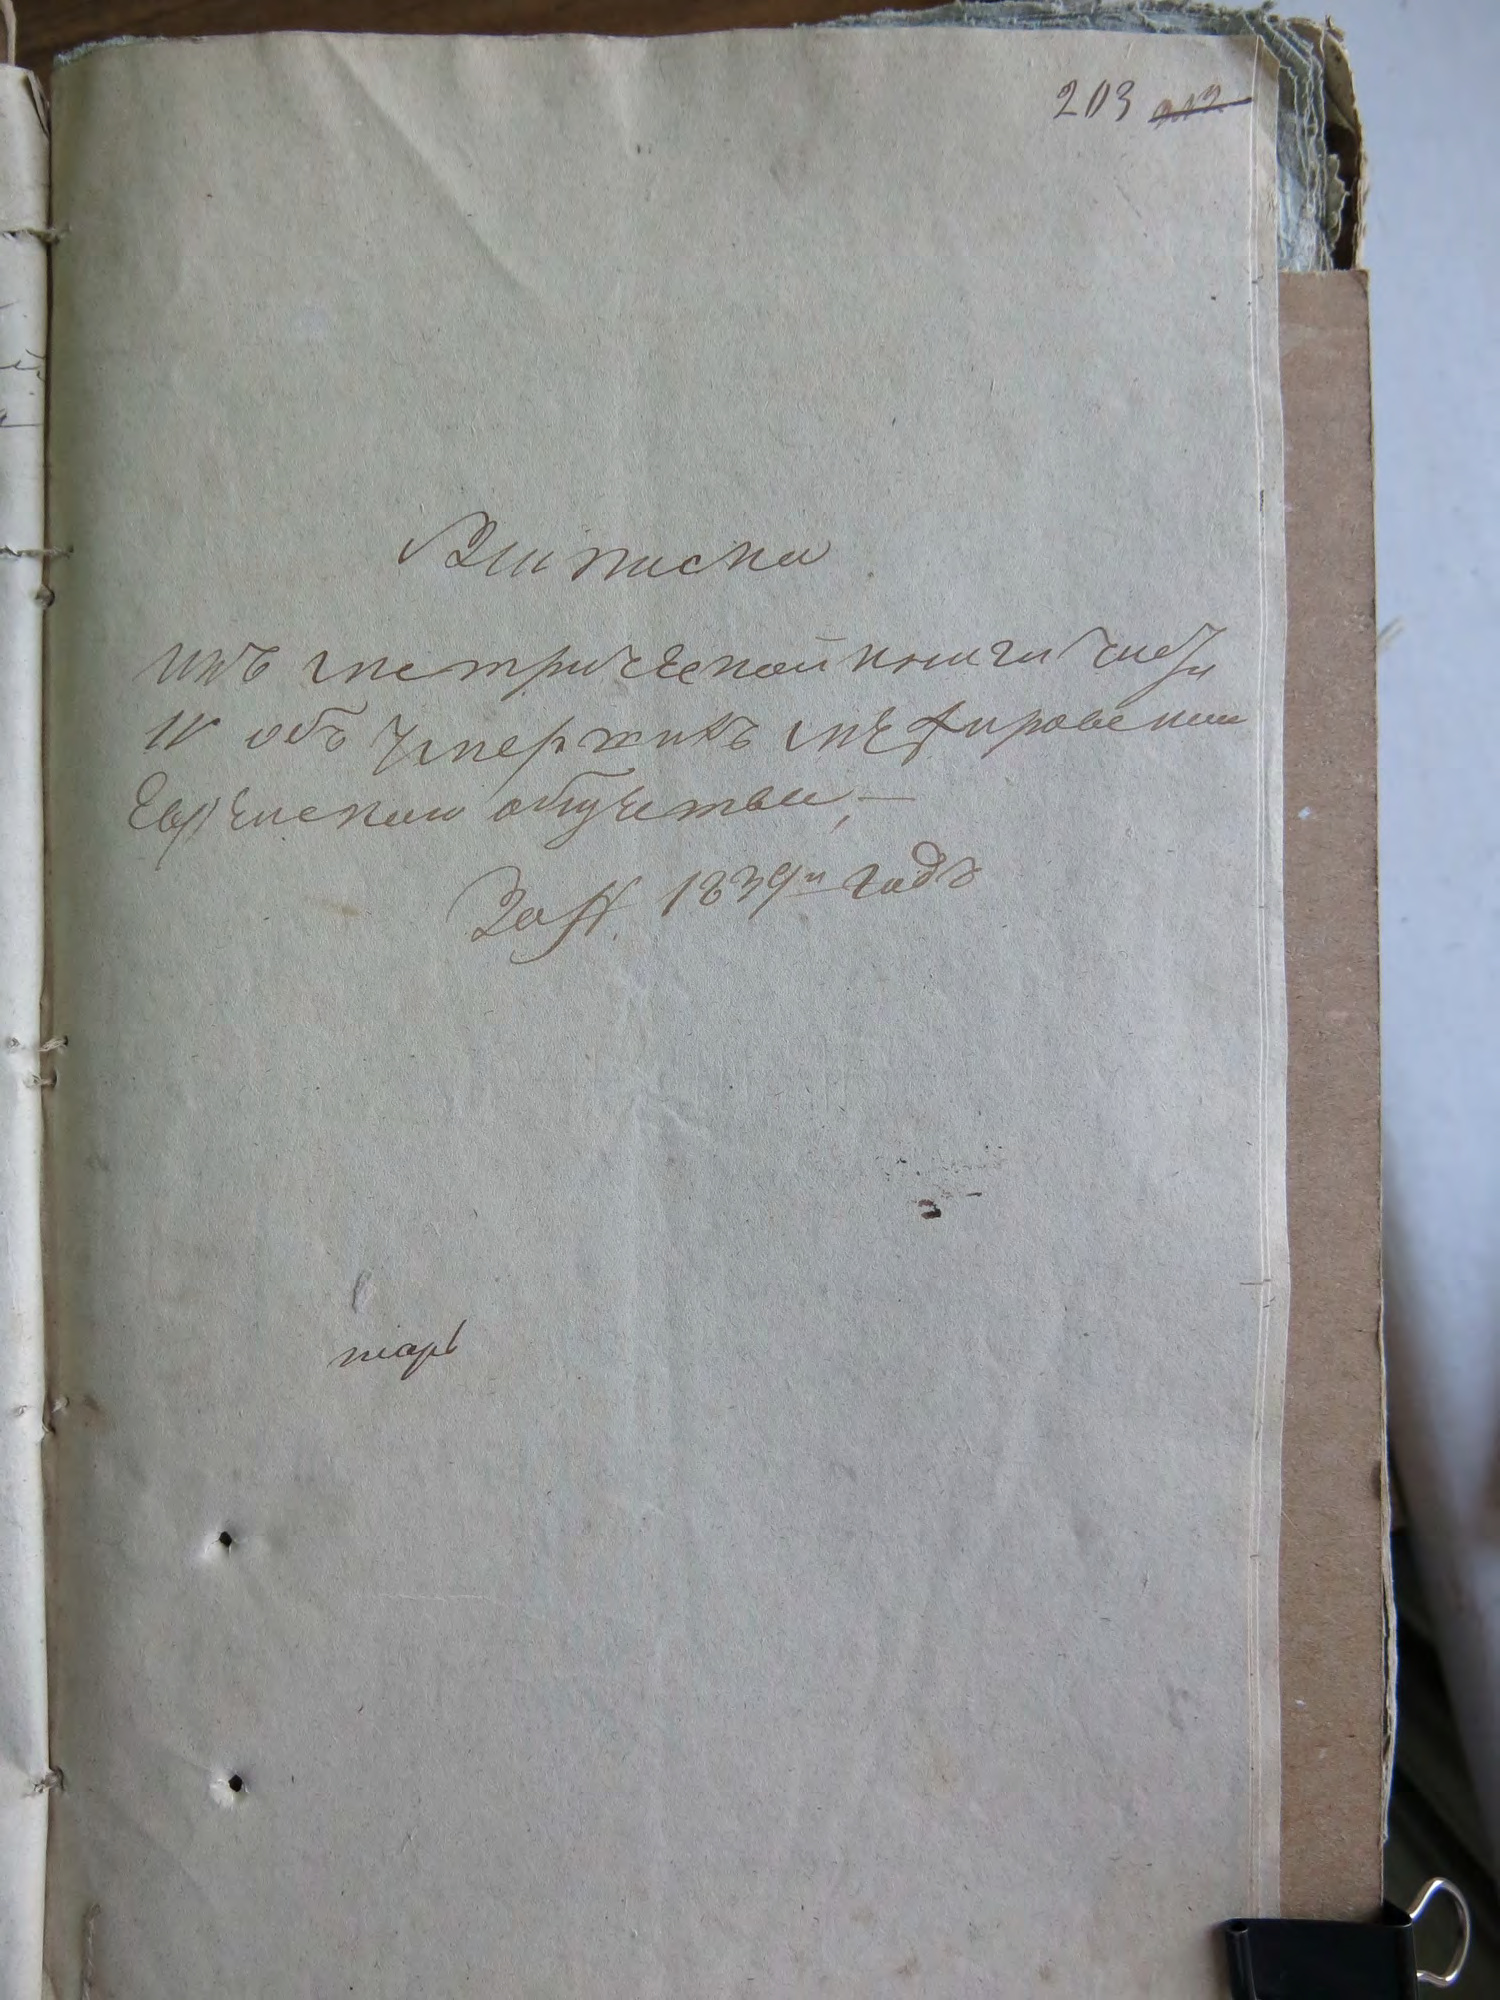 203 212
Выписка
изъ метрической книги части
IV объ умершихъ
Еврейскаго общества,—
За 1839й годъ
тарь